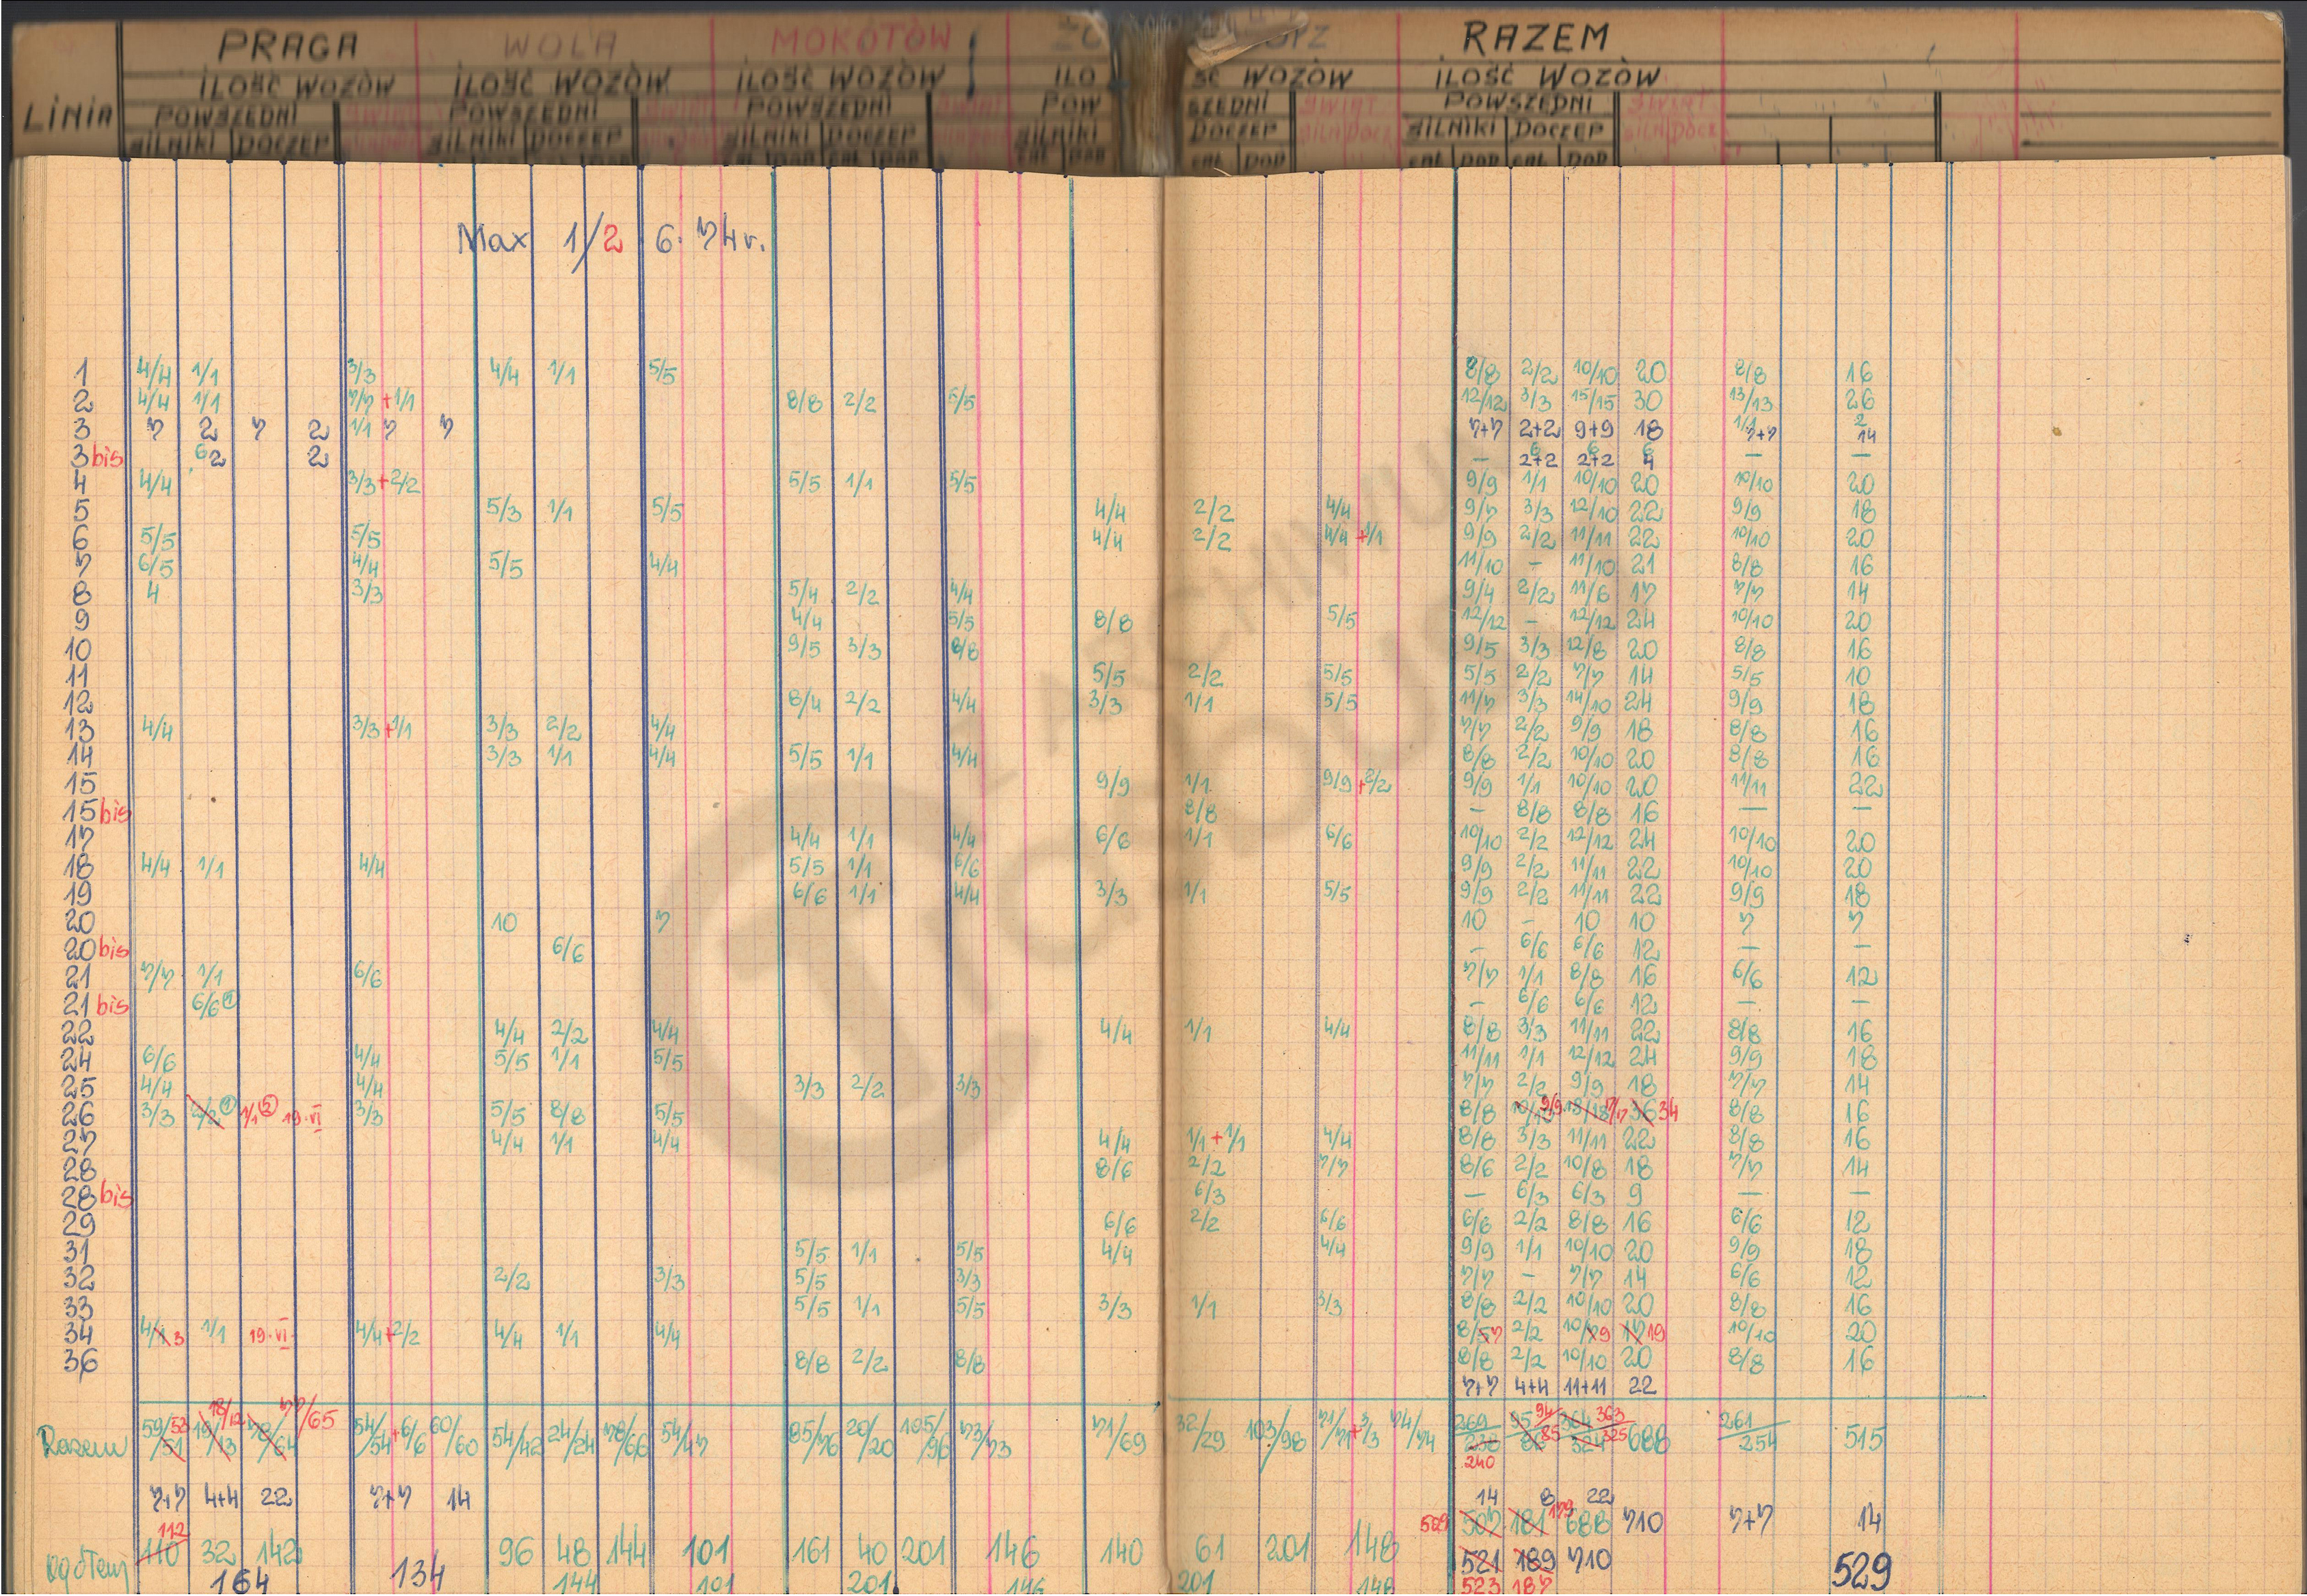 PRAGA WOLA MOKOTÓW RAZEM
ILOŚĆ WOZÓW ILOŚĆ WOZÓW ILOŚĆ WOZÓW ILOŚĆ WOZÓW ILOŚĆ WOZÓW
LINIA POWSZEDNI POWSZEDNI POWSZEDNI POWSZEDNI POWSZEDNI
SILNIKI DOCZEP SILNIKI DOCZEP SILNIKI DOCZEP SILNIKI DOCZEP SILNIKI DOCZEP
Max 1/2 6. 74 r.
1 4/4 1/1 3/3 4/4 1/1 5/5 8/8 2/2 10/10 20 8/8 16
2 4/4 1/1 7/7 +1/1 8/8 2/2 5/5 12/12 3/3 15/15 30 13/13 26
3 7 2 7 2 1/1 7 7 7+7 2+2 9+9 18 1/1 7+7 2 14
3 bis 6 2 2 — 6 2+2 6 2+2 6 4 — —
4 4/4 3/3+2/2 5/5 1/1 5/5 9/9 1/1 10/10 20 10/10 20
5 5/3 1/1 5/5 4/4 2/2 4/4 9/7 3/3 12/10 22 9/9 18
6 5/5 5/5 4/4 2/2 4/4 +1/1 9/9 2/2 11/11 22 10/10 20
7 6/5 4/4 5/5 4/4 11/10 - 11/10 21 8/8 16
8 4 3/3 5/4 2/2 4/4 9/4 2/2 11/6 17 7/7 14
9 4/4 5/5 8/8 5/5 12/12 - 12/12 24 10/10 20
10 9/5 3/3 8/8 9/5 3/3 12/8 20 8/8 16
11 5/5 2/2 5/5 5/5 2/2 7/7 14 5/5 10
12 8/4 2/2 4/4 3/3 1/1 5/5 11/7 3/3 14/10 24 9/9 18
13 4/4 3/3+1/1 3/3 2/2 4/4 7/7 2/2 9/9 18 8/8 16
14 3/3 1/1 4/4 5/5 1/1 4/4 8/8 2/2 10/10 20 8/8 16
15 9/9 1/1 9/9+2/2 9/9 1/1 10/10 20 11/11 22
15 bis 8/8 - 8/8 8/8 16 — —
17 4/4 1/1 4/4 6/6 1/1 6/6 10/10 2/2 12/12 24 10/10 20
18 4/4 1/1 4/4 5/5 1/1 6/6 9/9 2/2 11/11 22 10/10 20
19 6/6 1/1 4/4 3/3 1/1 5/5 9/9 2/2 11/11 22 9/9 18
20 10 7 10 - 10 10 7 7
20 bis 6/6 - 6/6 6/6 12 — —
21 7/7 1/1 6/6 7/7 1/1 8/8 16 6/6 12
21 bis 6/6 ① - 6/6 6/6 12 — —
22 4/4 2/2 4/4 4/4 1/1 4/4 8/8 3/3 11/11 22 8/8 16
24 6/6 4/4 5/5 1/1 5/5 11/11 1/1 12/12 24 9/9 18
25 4/4 4/4 3/3 2/2 3/3 7/7 2/2 9/9 18 7/7 14
26 3/3 2/2 ① 1/1 ② 19.VI 3/3 5/5 8/8 5/5 8/8 10/10 9/9 18/18 17/17 36 34 8/8 16
27 4/4 1/1 4/4 4/4 1/1+1/1 4/4 8/8 3/3 11/11 22 8/8 16
28 8/6 2/2 7/7 8/6 2/2 10/8 18 7/7 14
28 bis 6/3 — 6/3 6/3 9 — —
29 6/6 2/2 6/6 6/6 2/2 8/8 16 6/6 12
31 5/5 1/1 5/5 4/4 4/4 9/9 1/1 10/10 20 9/9 18
32 2/2 3/3 5/5 3/3 7/7 - 7/7 14 6/6 12
33 5/5 1/1 5/5 3/3 1/1 3/3 8/8 2/2 10/10 20 8/8 16
34 4/1 3 1/1 19.VI 4/4+2/2 4/4 1/1 4/4 8/5 7 2/2 10/7 9 17 19 10/10 20
36 8/8 2/2 8/8 8/8 2/2 10/10 20 8/8 16
7+7 4+4 11+11 22
Razem 59/51 53 19/13 18/12 78/64 77/65 54/54+6/6 60/60 54/42 24/24 78/66 54/47 85/76 20/20 105/96 73/73 71/69 32/29 103/98 71/71+3/3 74/74 269/238 240 95/86 94 85 364/324 363 325 688 261/254 515
7+7 4+4 22 7+7 14 14 8 22
112 529 507 181 179 688 710 7+7 14
Ogółem 110 32 142 134 96 48 144 101 161 40 201 146 140 61 201 148 521 189 710 529
164 144 101 201 146 201 148 523 187